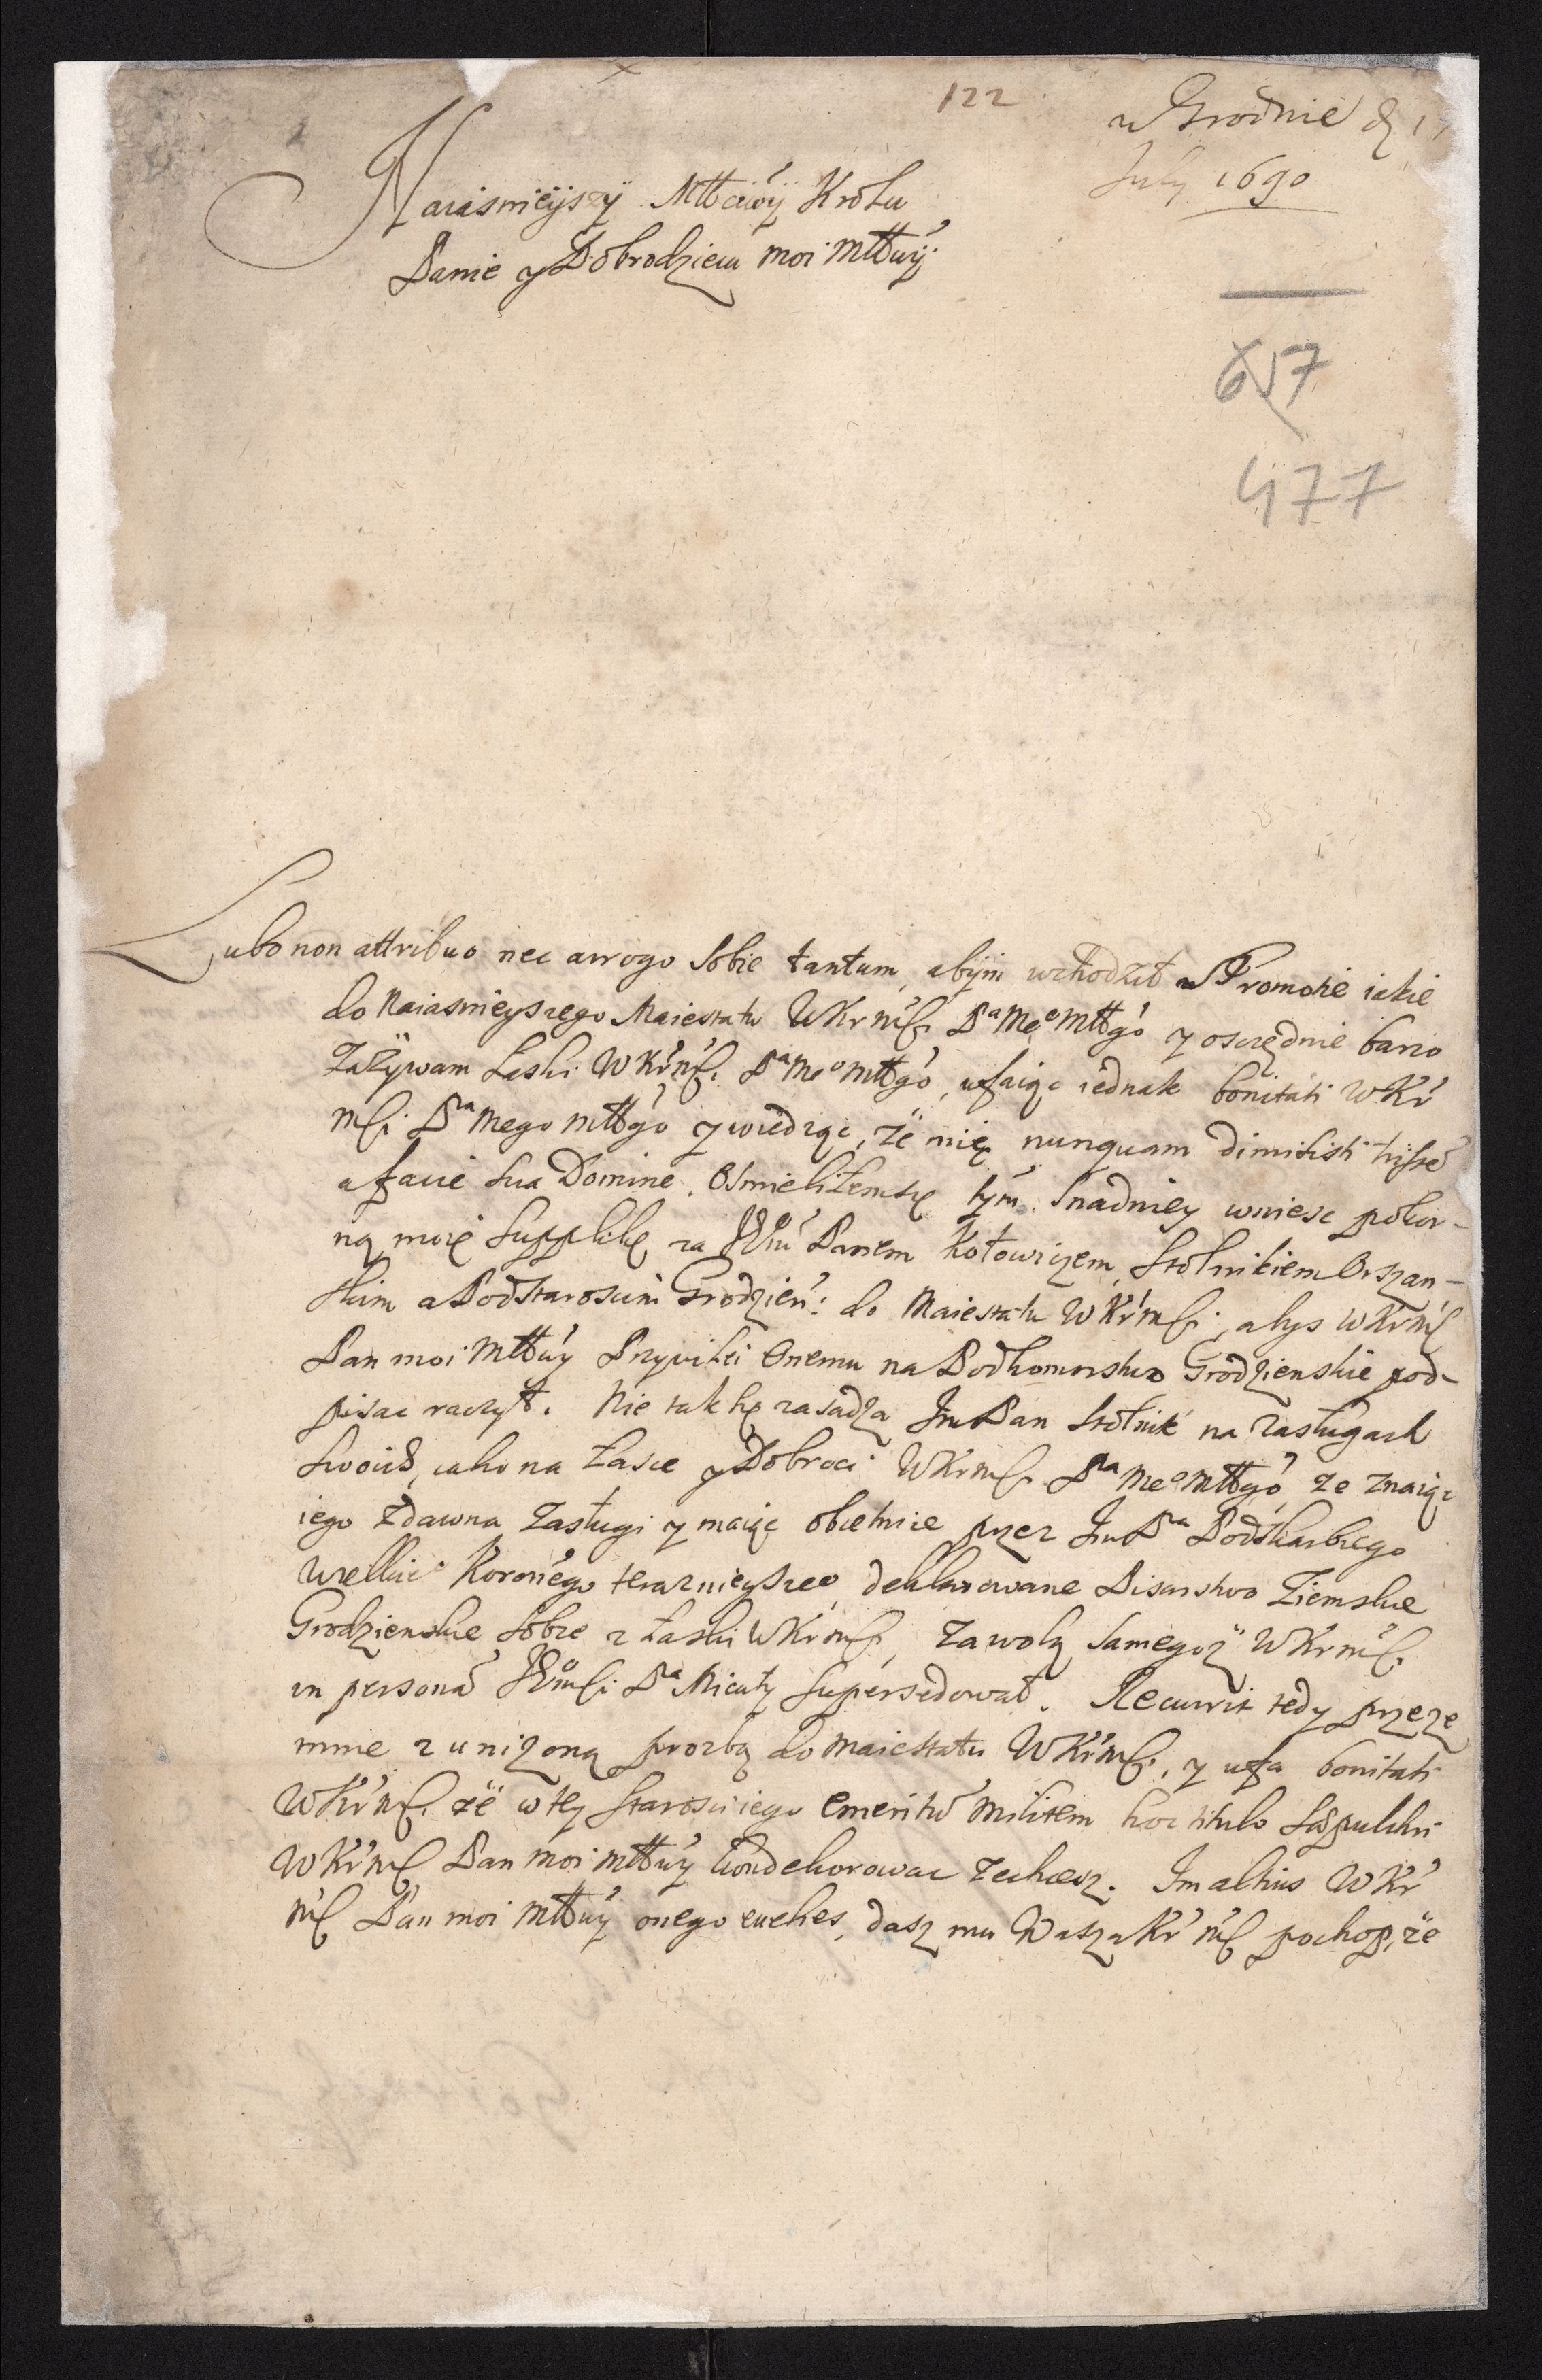 122
w Grodnie d 17
July 1690
Naiasnieÿszÿ Młłciwÿ Krolu
Panie y Dobrodzieiu moi Młłwÿ
657
477
Lubo non attribuo nec arrogo sobie tantum, abÿm wchodził w Promotie iakie
do Naiasnieyszego Maiestatu WKrMsci Pa Meo Młłgo y oszczędnie barzo
Zażÿwam Łaski WKrMsci Pa Meo Młłgo, ufaiąc iednak bonitati WKr
Msci Pa Mego Młłgo y wiedząc, że mię nunquam dimisisti tristē
a facie sua Domine. Osmieliłemsię tÿm snadniey wniesc pokor-
ną moię Supplikę za Panem Kotowiczem, Stolnikiem Orszan-
skim a Podstaroscim Grodzień: do Maiestatu WKrMsci, abys WKrMsc
Pan moi Młłwy Przywilei Onemu na Podkomorstwo Grodzienskie pod-
pisac raczył. Nie tak się zasadza Im Pan Stolnik na zasługach
swoich, iako na Łasce y Dobroci WKrMsci Pa Meo Młłgo, że znaiąc
iego zdawna Zasługi y maiąc obietnice przez Im Pa Podskarbiego
Wielkie Koronego terazniejszeo deklarowane Pisarstwo Ziemskie
Grodzienskie sobie z Łaski WKrMsci, za wolą samegoż WKrMsci
in personā Pa Micuty supersedował. Recurrit tedy przeze
mnie z uniżoną prozbą do Maiestatu WKrMsci, y ufa bonitati
WKrMsci że w tey starosci iego emeritū militem hoc titulo
WKrMsc Pan moi Młłwy kondekorowac zechcesz. Im altius WKr
Msc Pan moi Młłwy onego evehes, dasz mu Wasza Kr Msc pochop, że